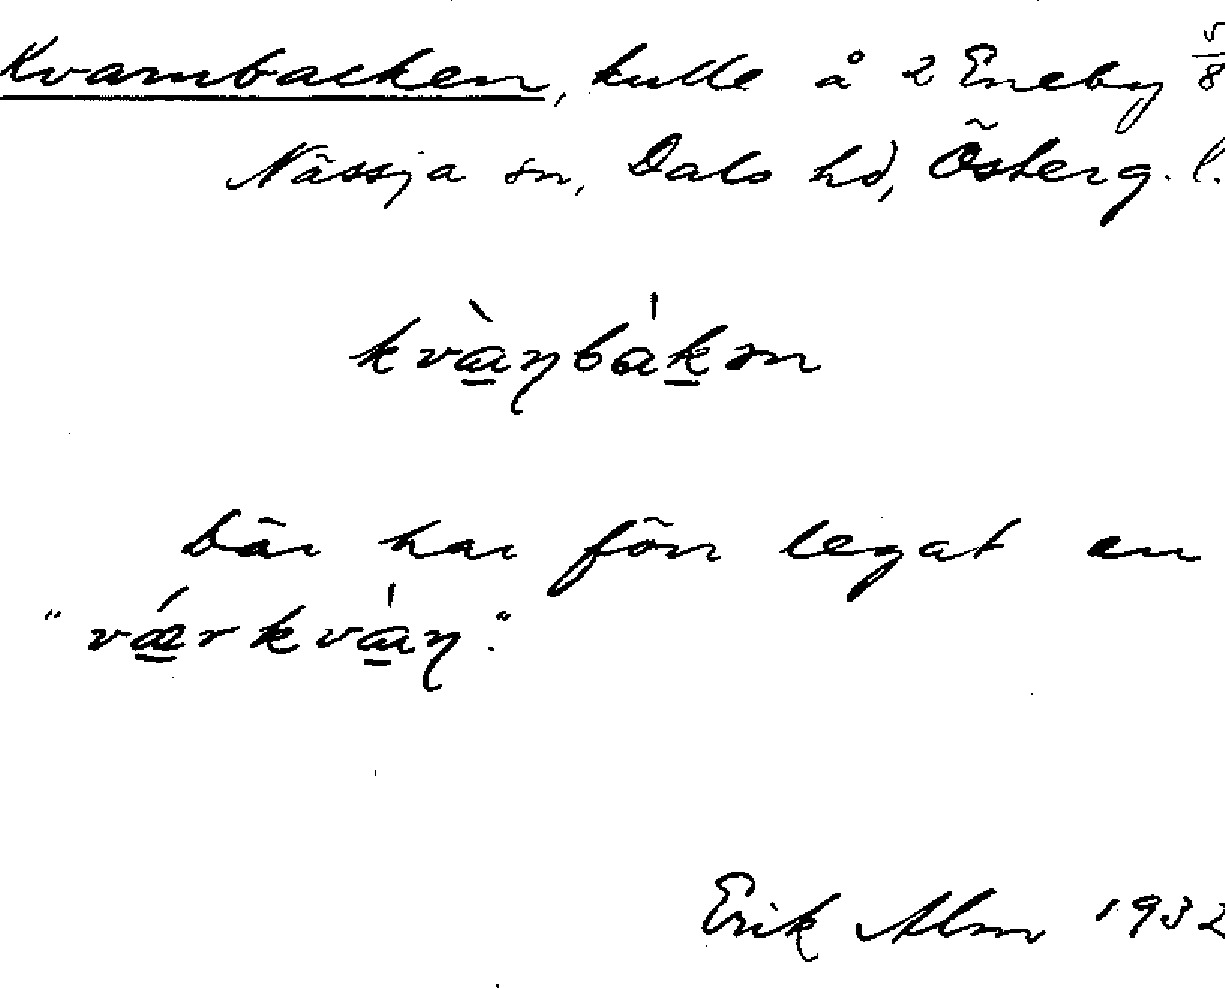 Kvarnbacken, kulle å 2 Eneby 5/8
Nässja sn, Dals hd, Österg. l.
kvàṇbákm
Där har förr legat en
"vǽrkváṇ."
Erik Alm 1932